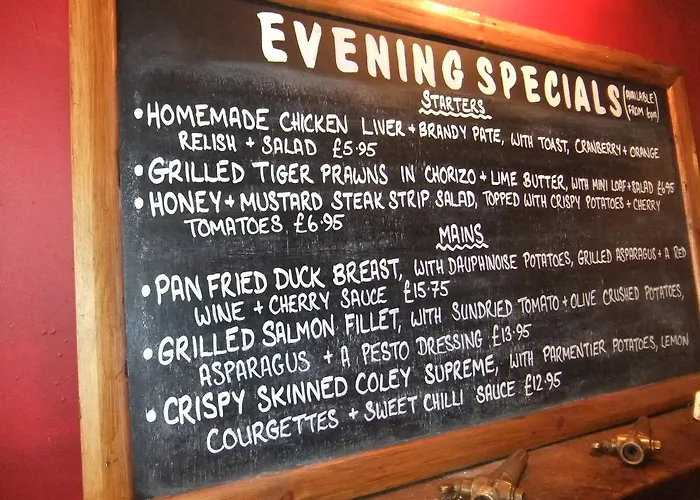 EVENING SPECIALS (AVAILABLE FROM 6pm)
STARTERS
• HOMEMADE CHICKEN LIVER + BRANDY PATE, WITH TOAST, CRANBERRY + ORANGE
RELISH + SALAD £5.95
• GRILLED TIGER PRAWNS IN CHORIZO + LIME BUTTER, WITH MINI LOAF + SALAD £6.95
• HONEY + MUSTARD STEAK STRIP SALAD, TOPPED WITH CRISPY POTATOES + CHERRY
TOMATOES £6.95
MAINS
• PAN FRIED DUCK BREAST, WITH DAUPHINOISE POTATOES, GRILLED ASPARAGUS + A RED
WINE + CHERRY SAUCE £15.75
• GRILLED SALMON FILLET, WITH SUNDRIED TOMATO + OLIVE CRUSHED POTATOES,
ASPARAGUS + A PESTO DRESSING £13.95
• CRISPY SKINNED COLEY SUPREME, WITH PARMENTIER POTATOES, LEMON
COURGETTES + SWEET CHILLI SAUCE £12.95